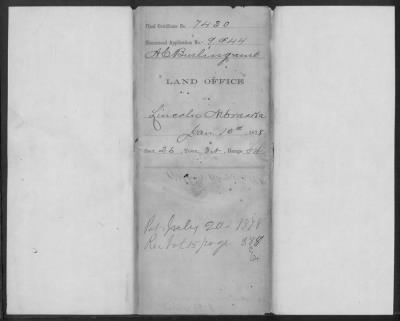 Final Certificate No. 7430
Homestead Application No. 9944
A E Burlingame
LAND OFFICE
Lincoln Nebraska
Jan 10th 1878
Sect. 26, Town. 3 N, Range
Pat July 20 1878
Rec Vol 15 page 388